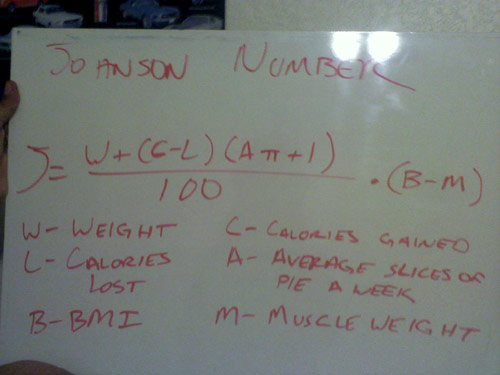 JOHNSON NUMBER
J = W+(C-L)(Aπ+1) / 100 · (B-M)
W- WEIGHT
C- CALORIES GAINED
L- CALORIES LOST
A- AVERAGE SLICES OF PIE A WEEK
B- BMI
M- MUSCLE WEIGHT